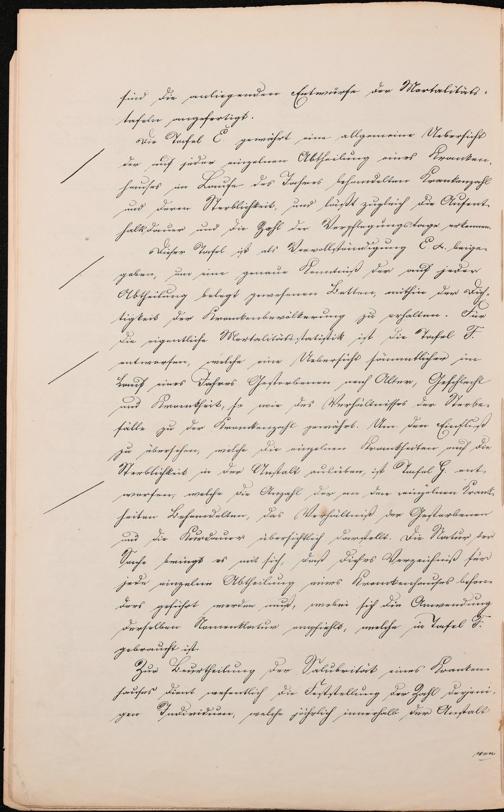 sind die anliegenden Entwürfe der Mortalitäts-
tafeln angefertigt.
Die Tafel E gewährt eine allgemeine Uebersicht
der auf jeder einzelnen Abtheilung eines Kranken-
hauses im Laufe des Jahres behandelten Krankenzahl
und deren Sterblichkeit, und läßt zugleich die Aufent-
haltsdauer und die Zahl der Verpflegungstage erkennen.
Dieser Tafel ist als Vervollständigung E a. beige-
geben, um eine genaue Kenntniß der auf jeder
Abtheilung belegt gewesenen Betten, mithin der Dich-
tigkeit der Krankenbevölkerung zu erhalten. Für
die eigentliche Mortalitätsstatistik ist die Tafel F.
entworfen, welche eine Uebersicht sämmtlicher im
Lauf eines Jahres Gestorbenen nach Alter, Geschlecht
und Krankheit, so wie des Verhältnisses der Sterbe-
fälle zu der Krankenzahl gewährt. Um den Einfluß
zu übersehen, welche die einzelnen Krankheiten auf die
Sterblichkeit in der Anstalt ausüben, ist Tafel G. ent-
worfen, welche die Anzahl der an den einzelnen Krank-
heiten Behandelten, das Verhältniß der Gestorbenen
und die Kurdauer übersichtlich darstellt. Die Natur der
Sache bringt es mit sich, daß dieses Verzeichniß für
jede einzelne Abtheilung eines Krankenhauses beson-
ders geführt werden muß, wobei sich die Anwendung
derselben Nomenklatur empfiehlt, welche in Tafel F.
gebraucht ist.
Zur Beurtheilung der Salubrität eines Kranken-
hauses dient wesentlich die Feststellung der Zahl derjeni-
gen Individuen, welche jährlich innerhalb der Anstalt
von